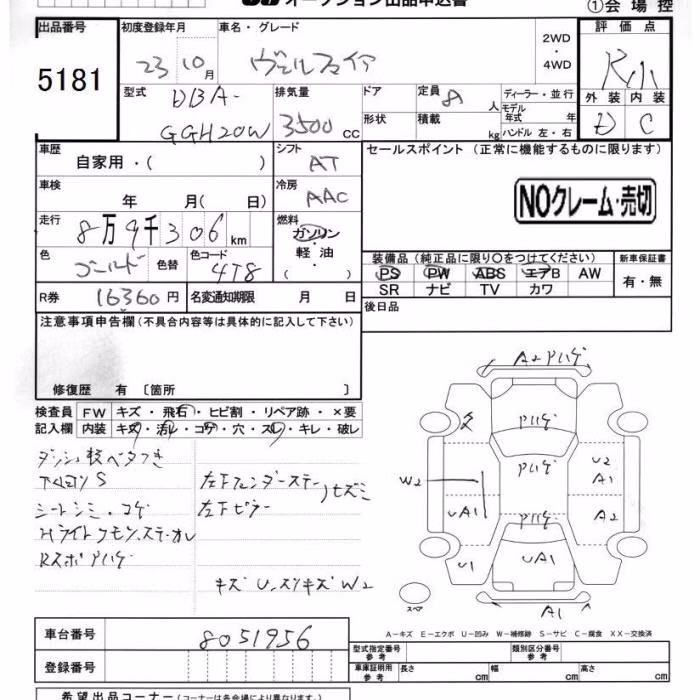 オークション出品申込書
①会場控
出品番号 初度登録年月 車名・グレード 2WD・4WD 評価点
5181 23 10月 ヴェルファイア R小
型式 排気量 ドア 定員 ディーラー・並行 外装 内装
DBA- GGH20W 3500cc 形状 8人 積載 kg モデル年式 年 ハンドル 左・右 D C
車歴 自家用・( ) シフト AT セールスポイント (正常に機能するものに限ります)
車検 年 月( 日) 冷房 AAC NOクレーム・売切
走行 8万9千306km 燃料 ガソリン・軽油・( )
色 ゴールド 色替 色コード 4T8 装備品 (純正品に限り○をつけてください) 新車保証書
PS PW ABS エアB AW 有・無
SR ナビ TV カワ
R券 16360円 名変通知期限 月 日 後日品
注意事項申告欄 (不具合内容等は具体的に記入して下さい)
修復歴 有 〔箇所 〕
検査員 FW キズ・飛石・ヒビ割・リペア跡・×要
記入欄 内装 キズ・汚レ・コゲ・穴・スレ・キレ・破レ
A2 Pハゲ
Pハゲ
Pハゲ U2
W2 A1
UA1 Pハゲ A2
U1 UA1
スペア A1
シートシミ.コゲ 左Fピラー
RスポPハゲ
キズU.スリキズW2
A-キズ E-エクボ U-凹み W-補修跡 S-サビ C-腐食 XX-交換済
車台番号 8051956
型式指定番号 参考 類別区分番号 参考
登録番号 車庫証明用 参考 長さ cm 幅 cm 高さ cm
希望出品コーナー (コーナーは各会場により異なります。)